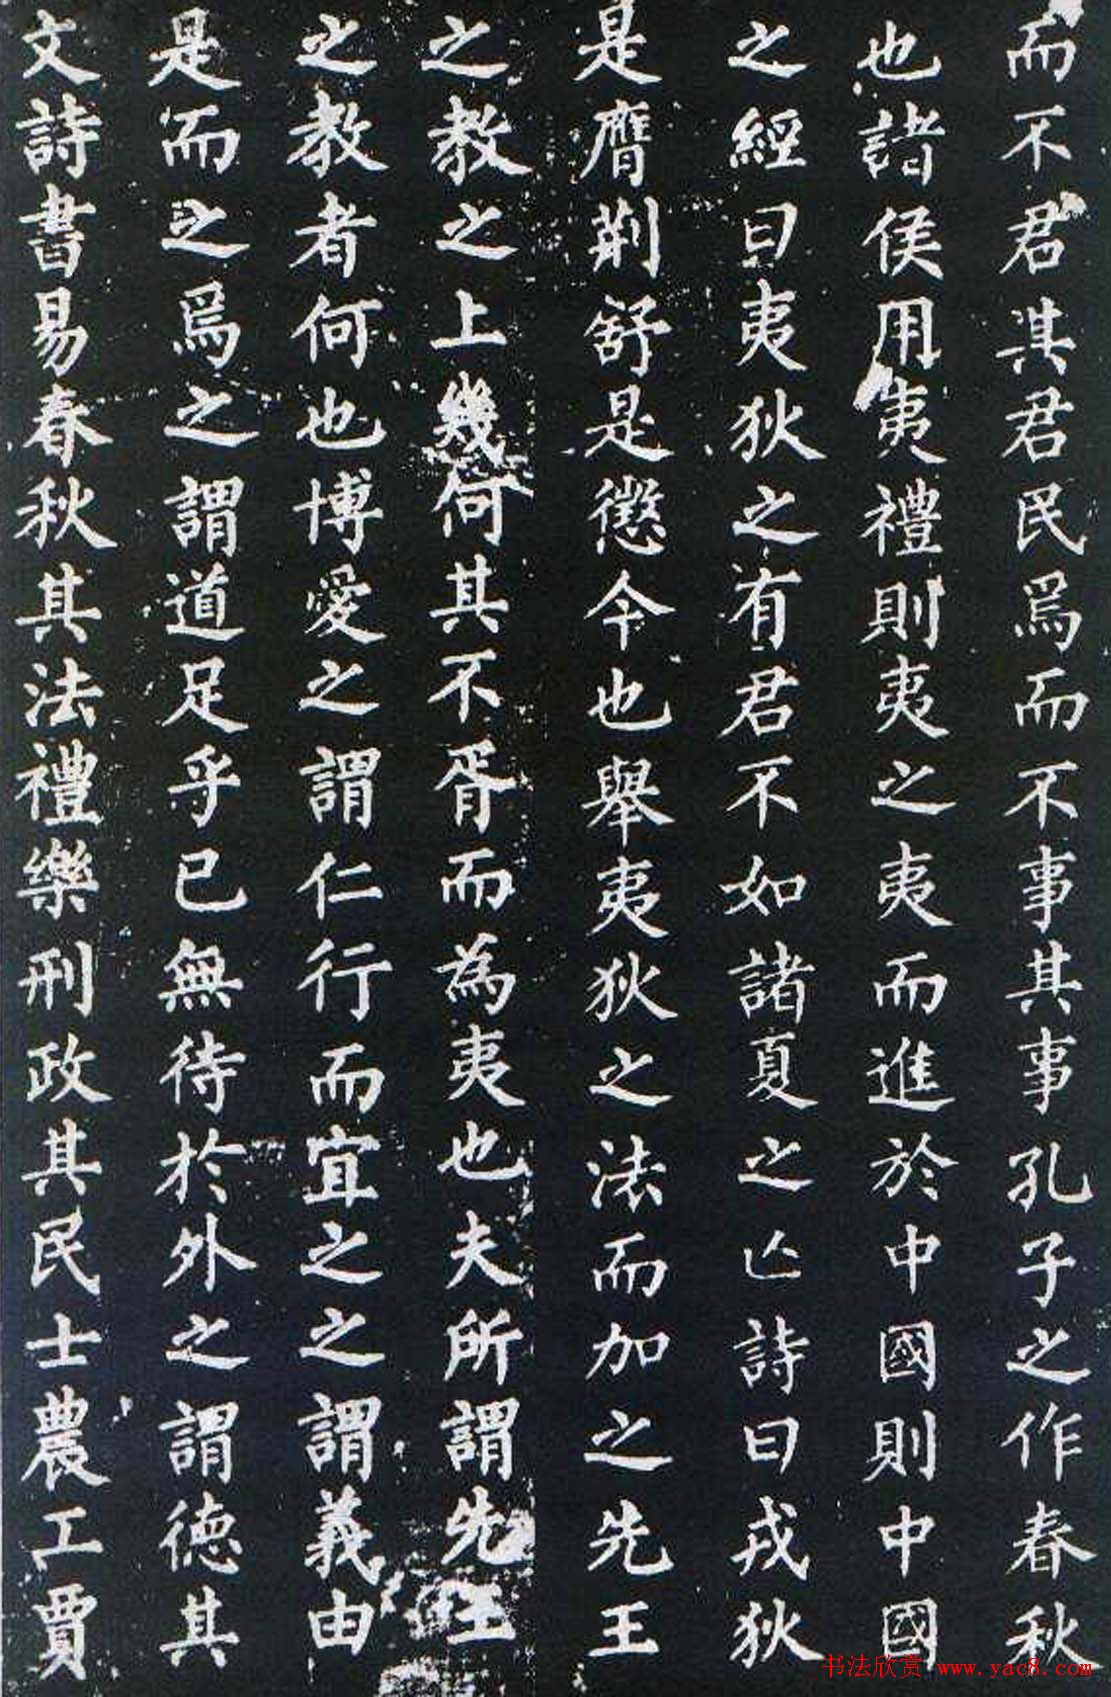 而不君其君民焉而不事其事孔子之作春秋
也諸侯用夷禮則夷之夷而進於中國則中國
之經曰夷狄之有君不如諸夏之亡詩曰戎狄
是膺荆舒是懲今也舉夷狄之法而加之先王
之教之上幾何其不胥而為夷也夫所謂先王
之教者何也博愛之謂仁行而宜之之謂義由
是而之焉之謂道足乎已無待於外之謂徳其
文詩書易春秋其法禮樂刑政其民士農工賈
书法欣赏 www.yac8.com